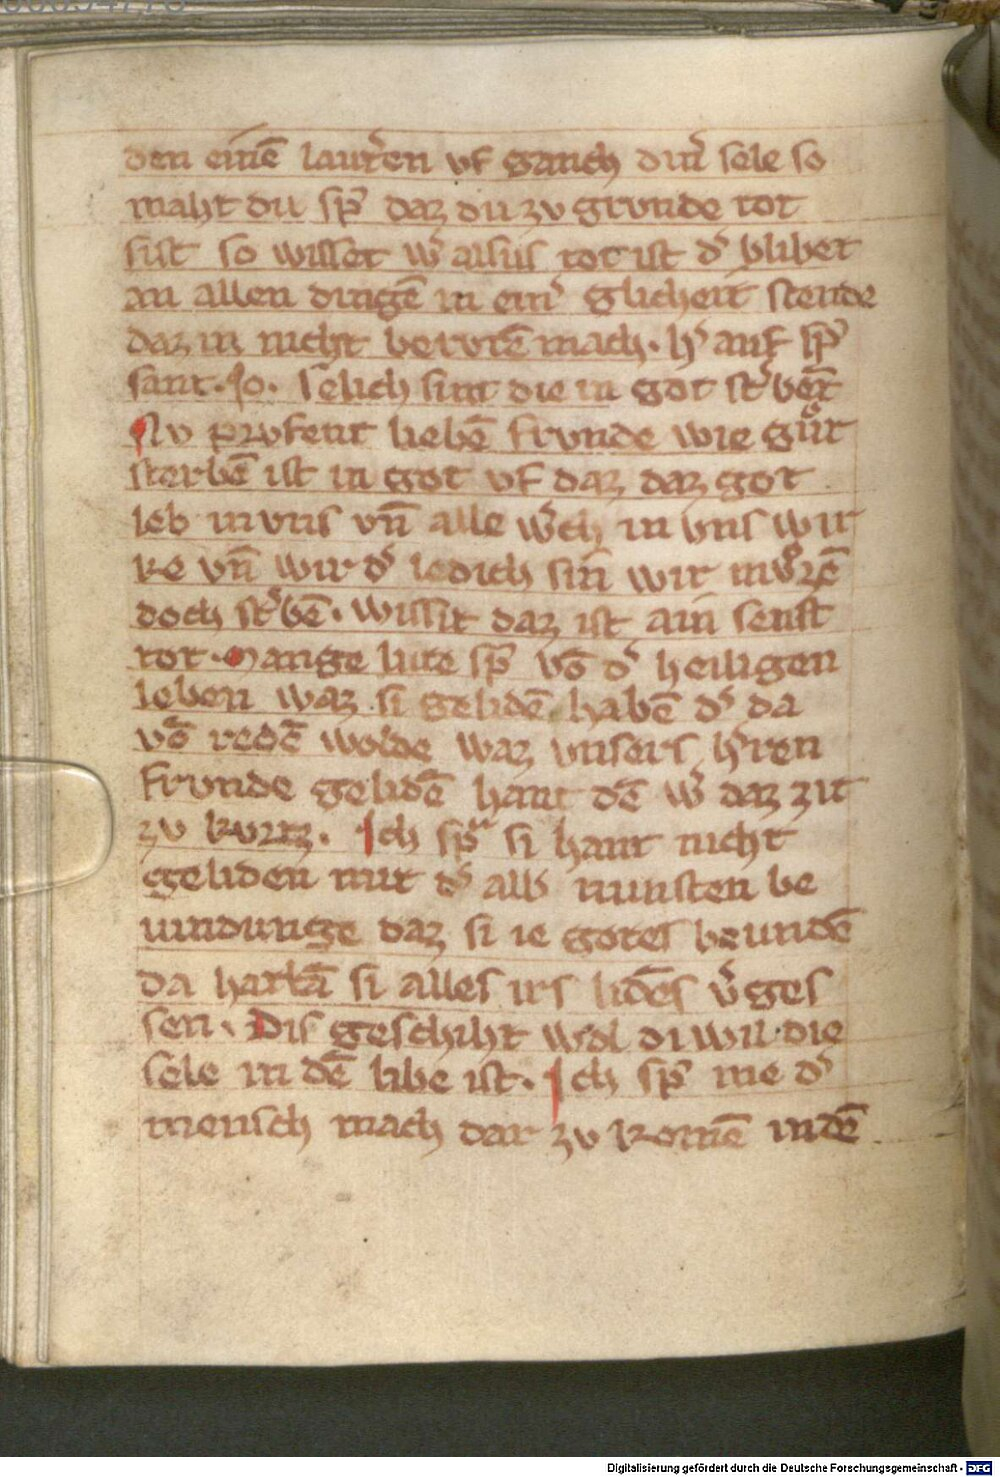 den einē lautˀen vf ganch dinˀ sele so
maht du sp̄ daz du zv grvnde tot
sist so wisset wˀ alsus tot ist dˀ blibet
an allen dingē in einˀ glicheit stende
daz in nicht bervrē mach · hˀ auf sp̄
sant · Jo · selich sint die in got stˀbēt
Nv prvfent liebē frvnde wie gůt
sterbē ist in got vf daz daz got
leb in vns vn̄ alle wˀch in vns wir
ke vn̄ wir dˀ ledich sin̄ wir mvͦzē
doch stˀbē · wissit daz ist ain senft
tot · Mange lute sp̄ vō dˀ heiligen
leben waz si gelidē habē dˀ da
vō redē wolde waz vnsers hˀren
frvnde gelidē hant dē wˀ daz zit
zv kvrtz · Ich sp̄ si hant nicht
geliden mit dˀ allˀ minsten be
uindunge daz si ie gotes beuindē
da hattā si alles irs lidēs vˀges
sen · Dis geschiht wol di wil die
sele in dē libe ist · Ich sp̄ me dˀ
mensch mach dar zv komē in dē
Digitalisierung gefördert durch die Deutsche Forschungsgemeinschaft - DFG